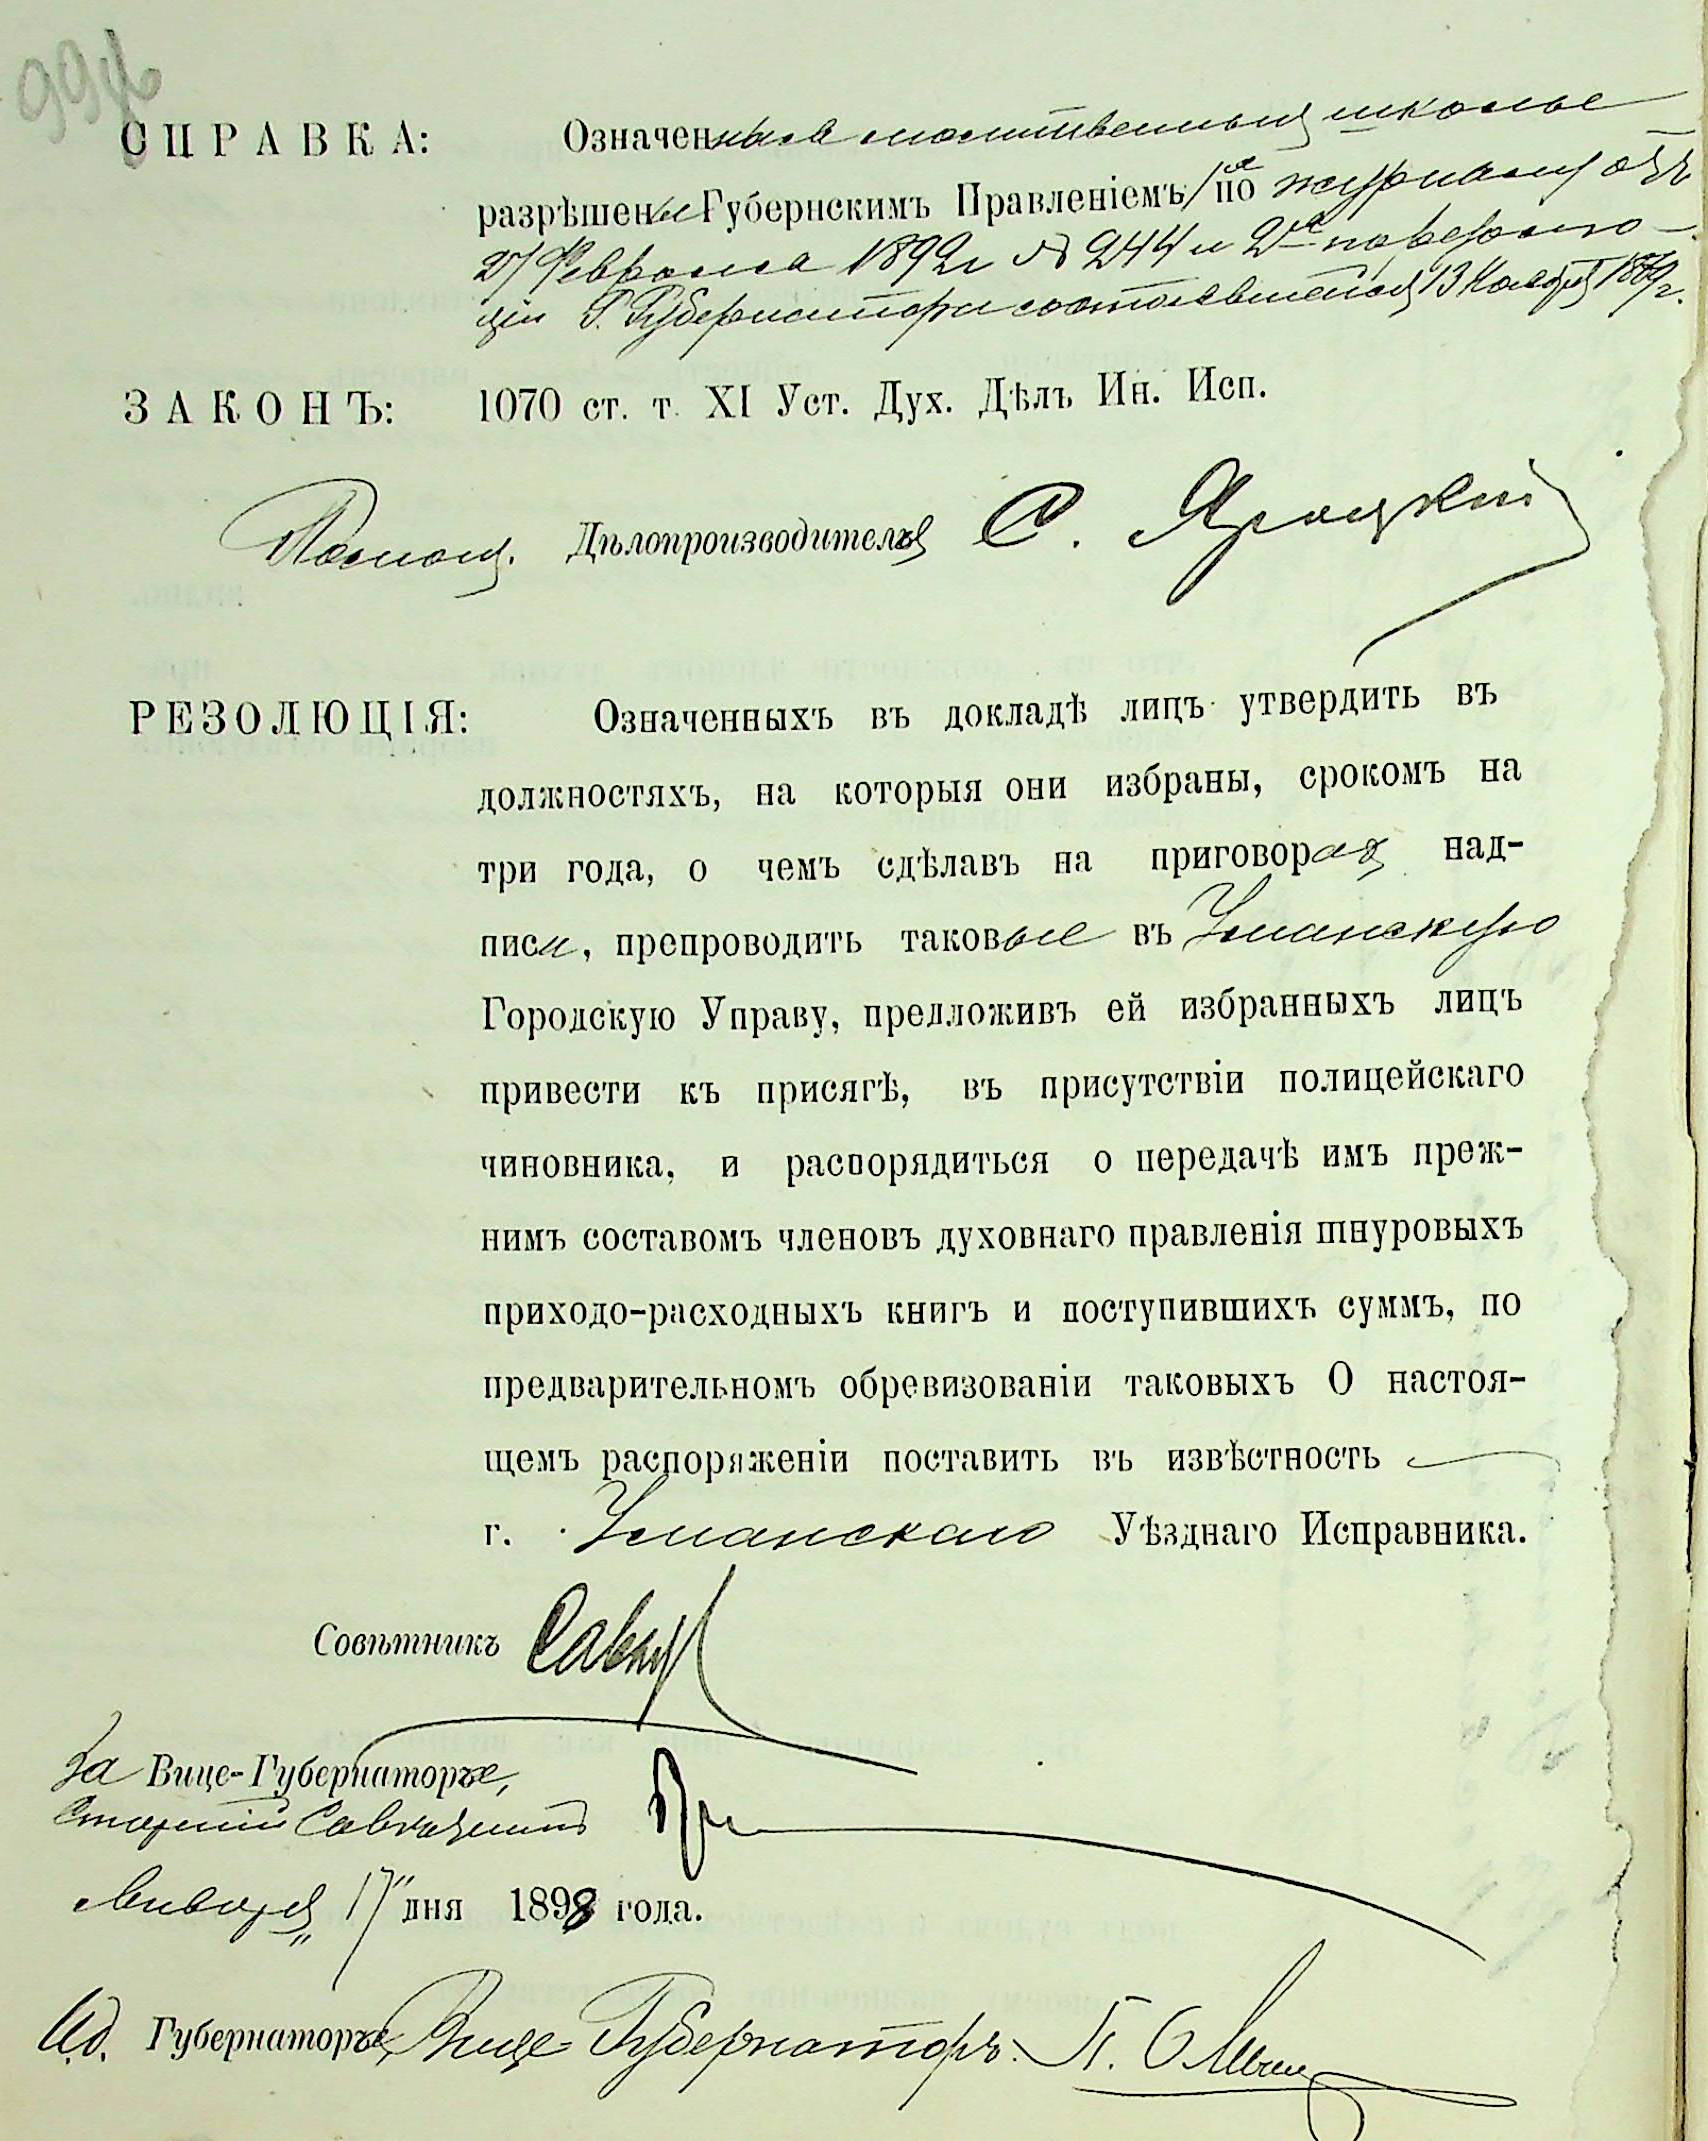 994
СПРАВКА: Означенныя молитвенныя школы
разрѣшены Губернскимъ Правленіемъ 1я по журналу отъ
27 Февраля 1892 г. № 244 и 2я по резолю-
ціи Г. Губернатора состоявшейся 13 Ноября г.
ЗАКОНЪ: 1070 ст. т. XI Уст. Дух. Дѣлъ Ин. Исп.
Помощ. Дѣлопроизводителя С. Яроцкій
РЕЗОЛЮЦІЯ: Означенныхъ въ докладѣ лицъ утвердить въ
должностяхъ, на которыя они избраны, срокомъ на
три года, о чемъ сдѣлавъ на приговорахъ над-
писи, препроводить таковые въ Уманскую
Городскую Управу, предложивъ ей избранныхъ лицъ
привести къ присягѣ, въ присутствіи полицейскаго
чиновника, и распорядиться о передачѣ имъ преж-
нимъ составомъ членовъ духовнаго правленія шнуровыхъ
приходо-расходныхъ книгъ и поступившихъ суммъ, по
предварительномъ обревизованіи таковыхъ О настоя-
щемъ распоряженіи поставить въ извѣстность
г. Уманскаго Уѣзднаго Исправника.
Совѣтникъ
За Вице-Губернатора,
Старшій Совѣтникъ
Января 17 дня 1898 года.
И.д. Губернатора, Вице-Губернаторъ